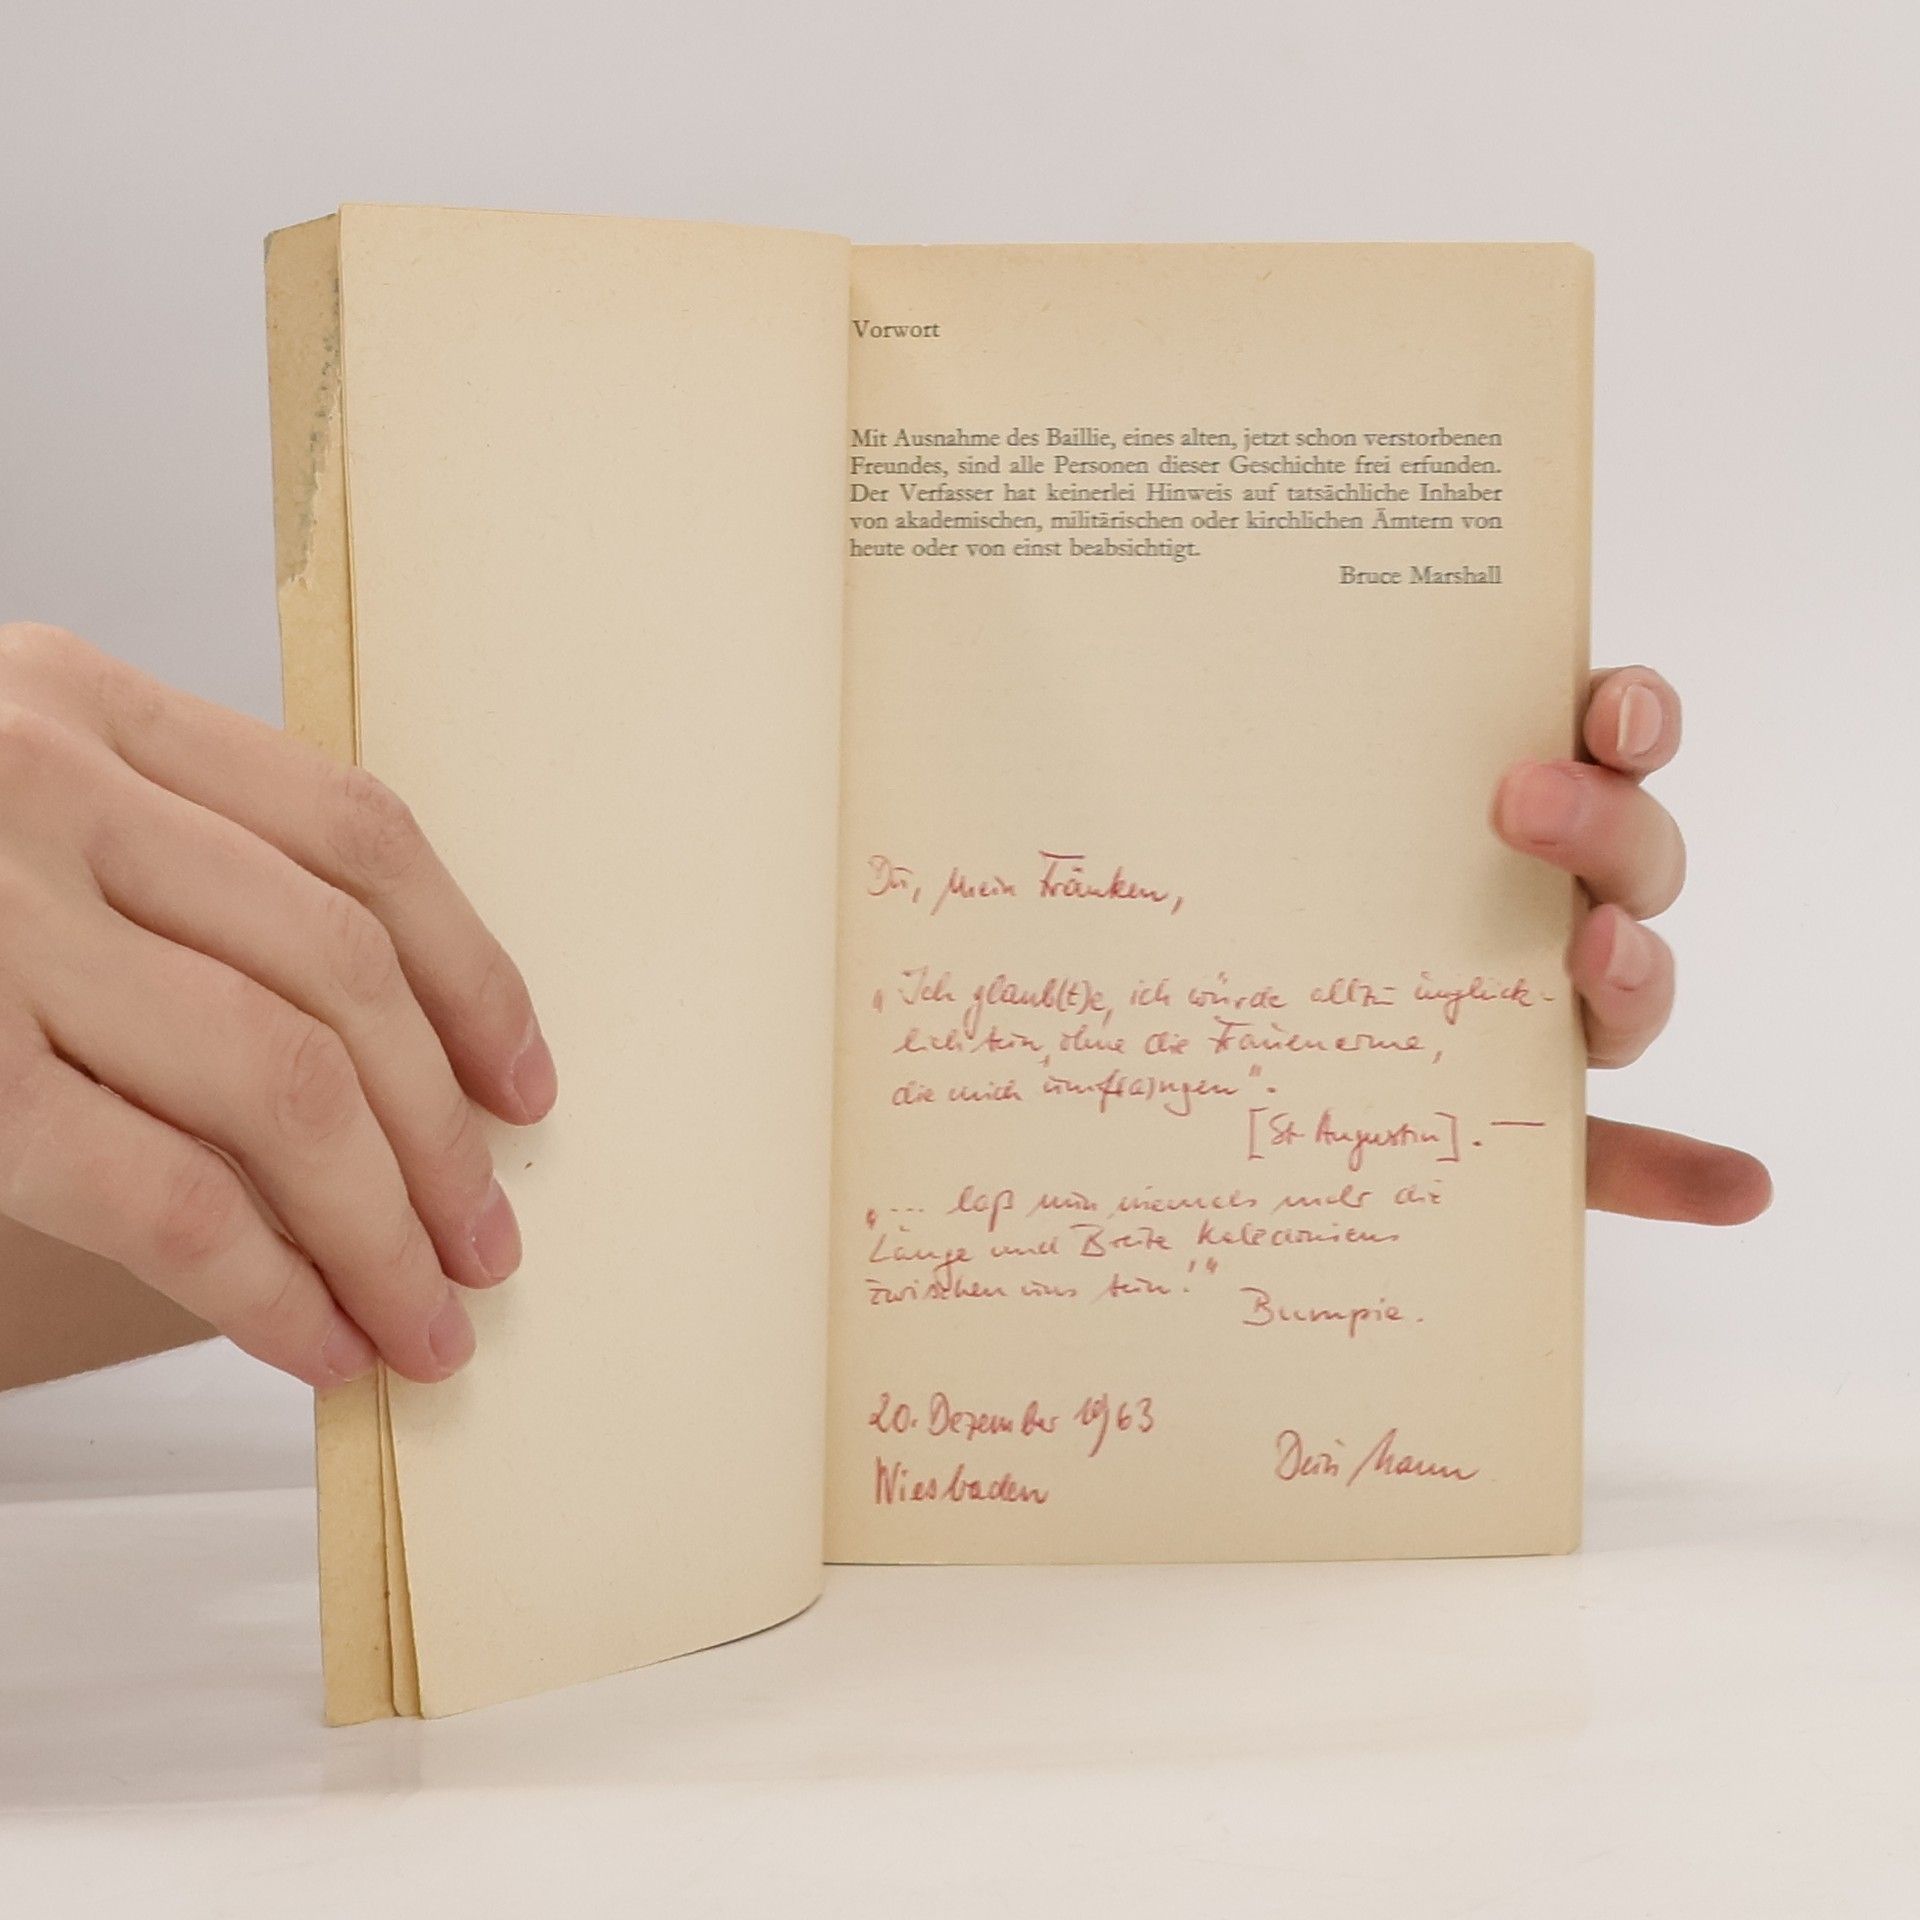 Vorwort
Mit Ausnahme des Baillie, eines alten, jetzt schon verstorbenen
Freundes, sind alle Personen dieser Geschichte frei erfunden.
Der Verfasser hat keinerlei Hinweis auf tatsächliche Inhaber
von akademischen, militärischen oder kirchlichen Ämtern von
heute oder von einst beabsichtigt.
Bruce Marshall
Du, mein Fränken,
„Ich glaub(t)e, ich würde allzu unglück-
lich sein, ohne die Frauenarme,
die mich umf(a)ngen".
[St Augustin]. —
„... laß nun niemals mehr die
Länge und Breite Kaledoniens
zwischen uns sein!"
Bumpie.
20. Dezember 1963
Wiesbaden
Dein Mann